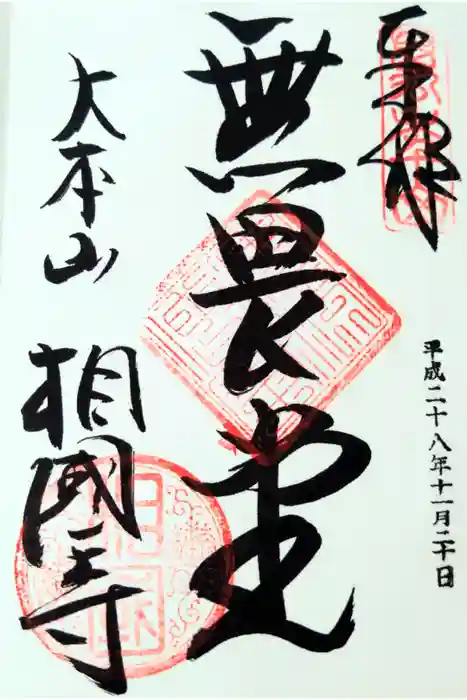 奉拝
平成二十八年十一月二十日
無畏堂
大本山
相國寺